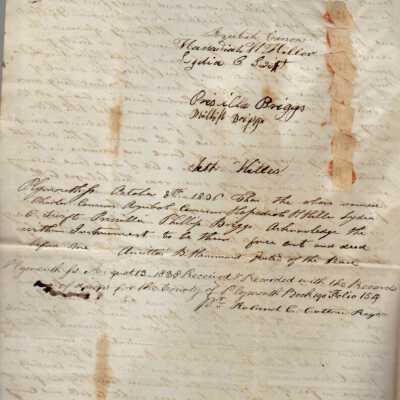 Azubah Canon
Hanniah N Hiller
Lydia C Swift
Prisilla Briggs
Phillip Briggs
Seth Hiller
Plymouth ss October 3th 1836 Then the above named
Canon Azubah Canon Hiller Lydia
C. Swift Priscilla Phillip Briggs Acknowledg the
within Instrument to be their free act and deed
before me B. Hammond Justice of the Peace
Plymouth ss. August 13. 1838 Received & Recorded with the Records
of deeds for the County of Plymouth Book Folio 159
pr. Roland C. Cotton Regr